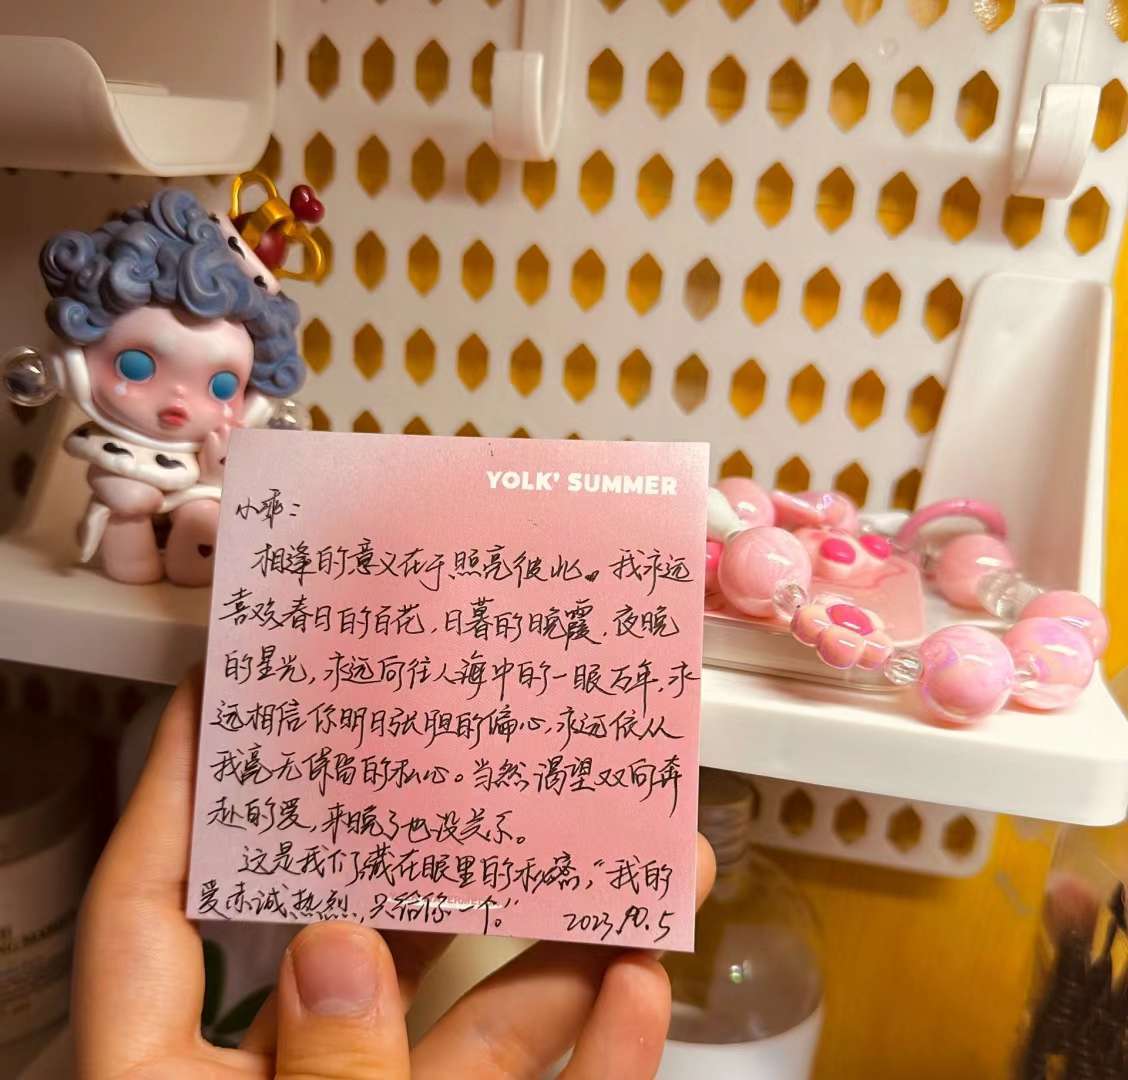 YOLK' SUMMER
小乖：
相逢的意义在于照亮彼此。我永远
喜欢春日的百花，日暮的晚霞，夜晚
的星光，永远向往人海中的一眼万年，永
远相信你明目张胆的偏心，永远依从
我毫无保留的私心。当然，渴望双向奔
赴的爱，来晚了也没关系。
这是我们藏在眼里的秘密，“我的
爱赤诚热烈，只给你一个。”
2023.10.5